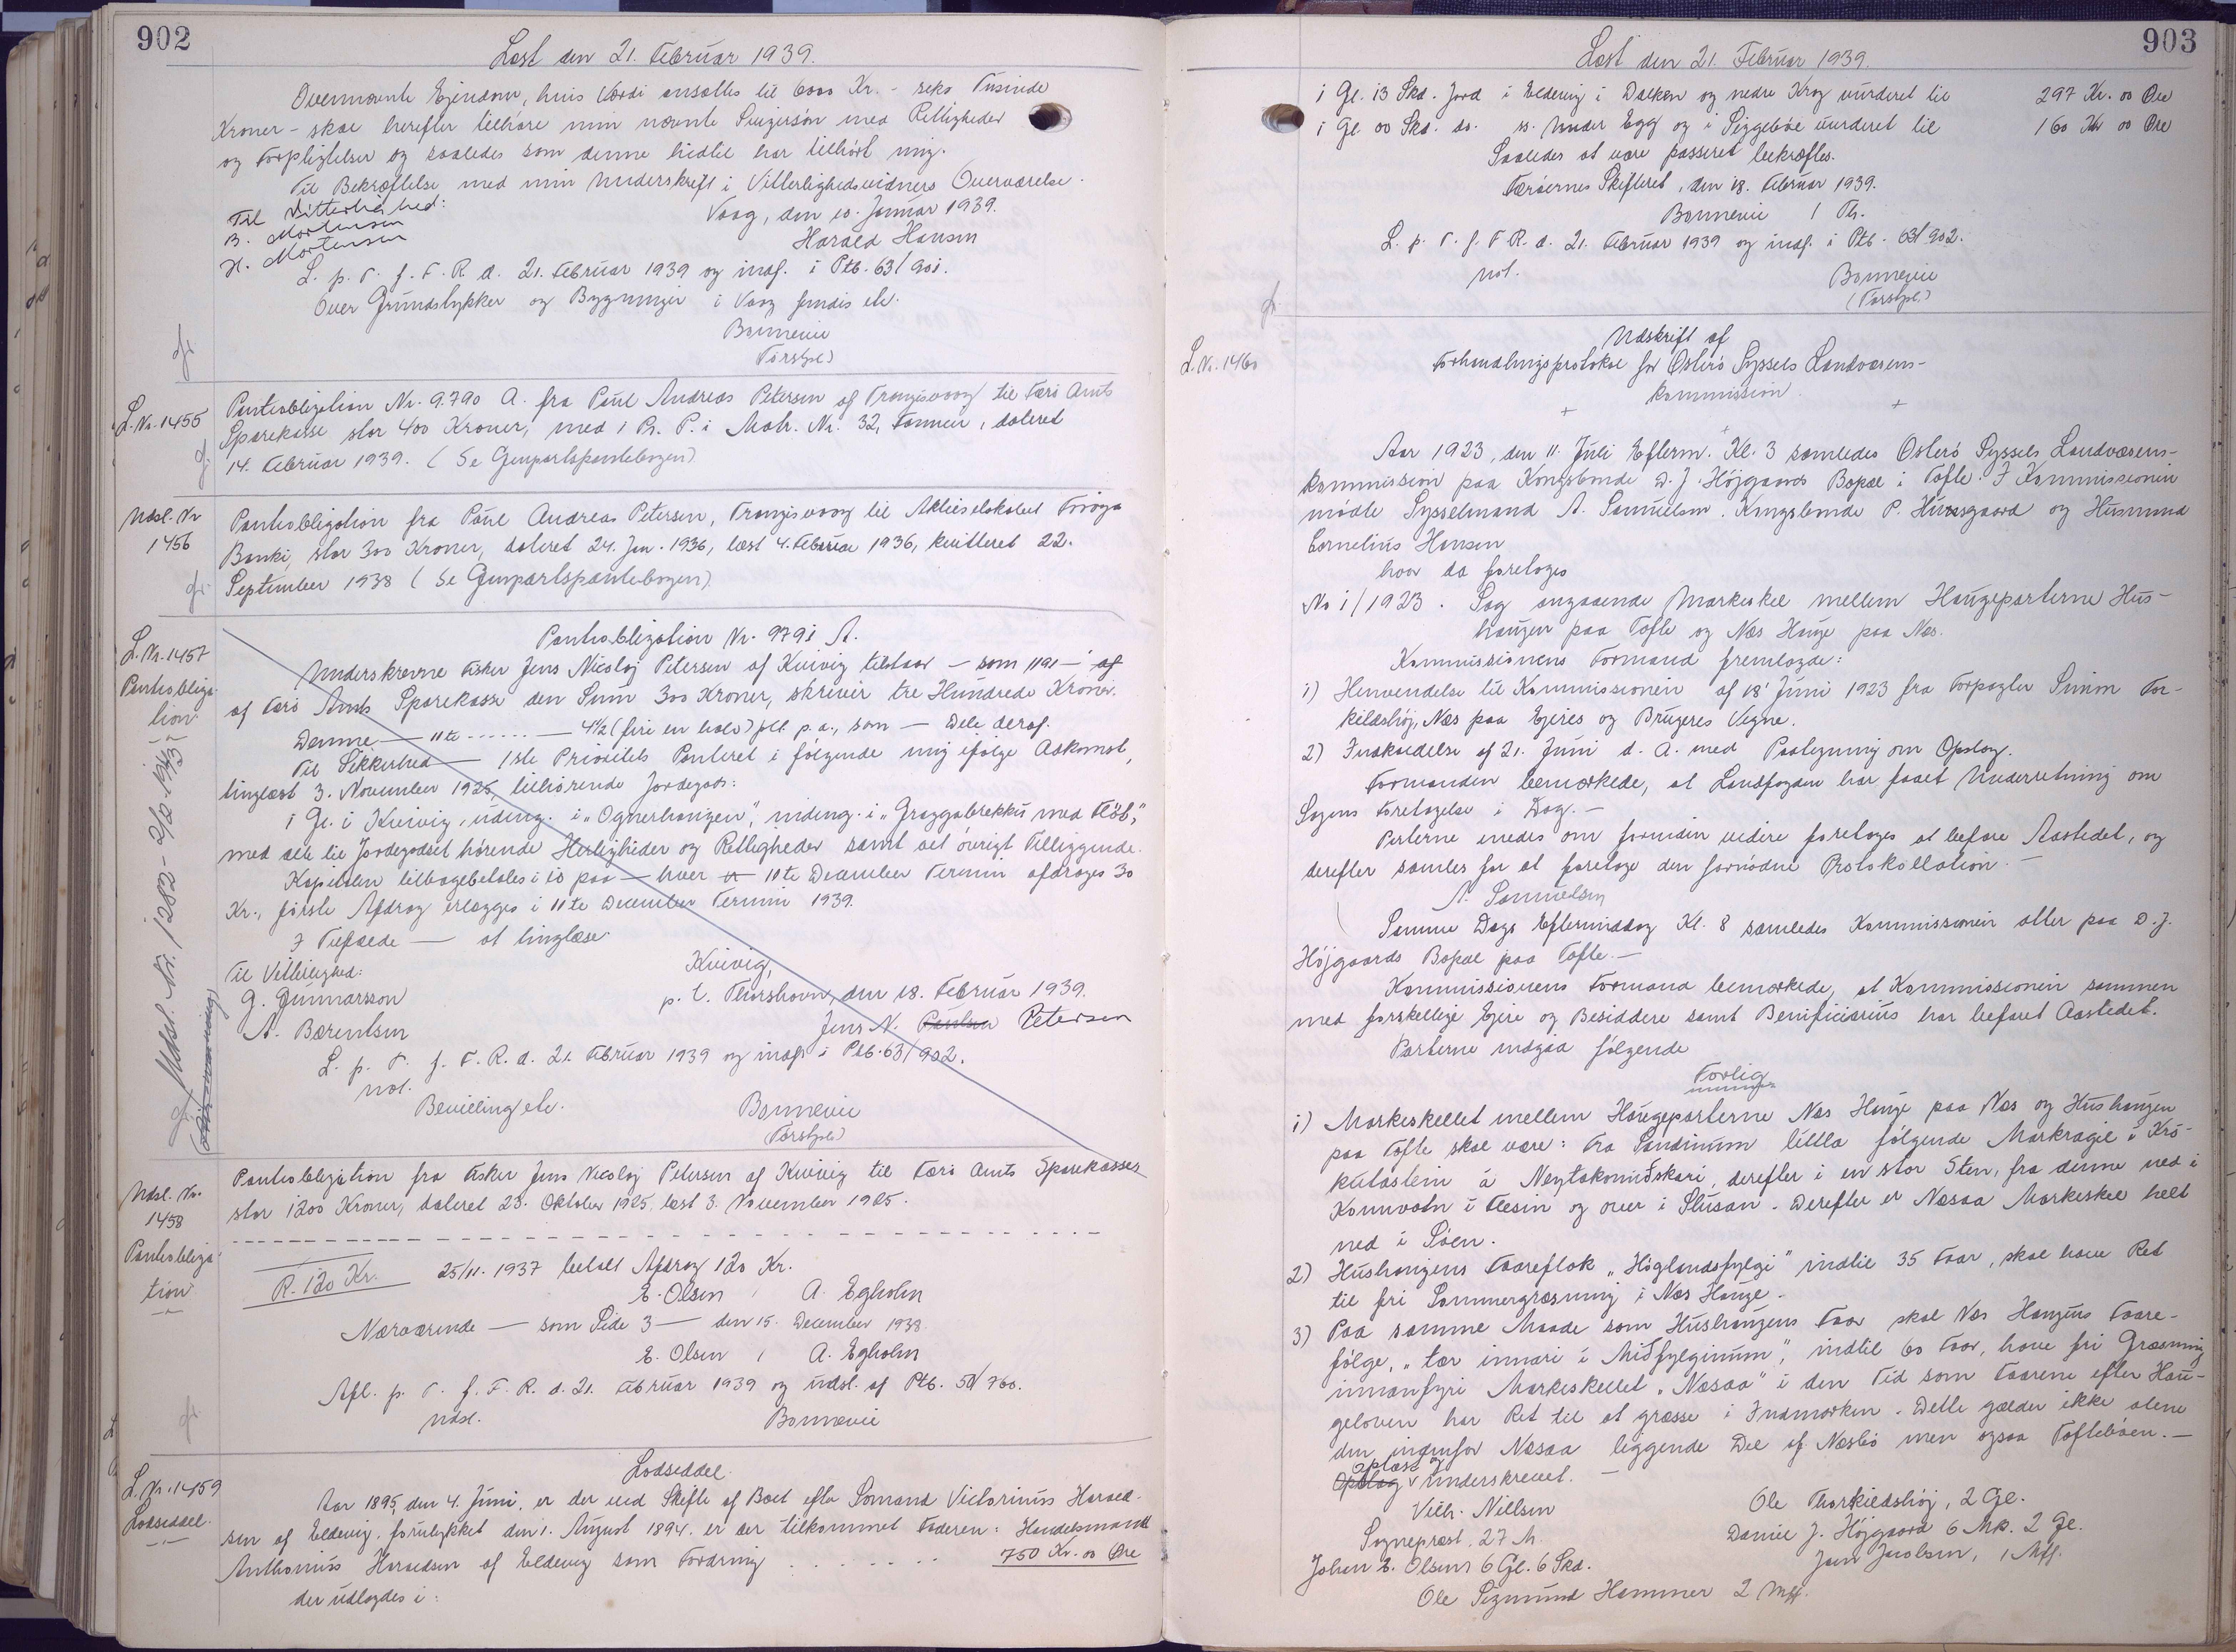 902
Læst den 21. Februar 1939.
Ovennævnte Ejendom, hvis Værdi ansættes til 6000 Kr. - seks Tusinde
Kroner - skal herefter tilhøre min nævnte Svigersøn med Rettigheder
og Forpligtelser og saaledes som denne hidtil har tilhørt mig.
Til Bekræftelse med min Underskrift i Vitterlighedsvidners Overværelse.
Til Vitterlighed:
Vaag, den 10. Januar 1939.
B. Mortensen
Harald Hansen
H. Mortensen
L. p. T. f. F. R. d. 21. Februar 1939 og indf. i Ptb. 63/901.
Over Grundstykker og Bygninger i Vaag findes etc.
Bonnevie
(Forstpl.)
L. Nr. 1455
Panteobligation Nr. 9790 A. fra Poul Andreas Petersen af Trangisvaag til Færø Amts
Sparekasse stor 400 Kroner, med 1 Pr. P. i Matr. Nr. 32, , dateret
14. Februar 1939. (Se Genpartspantebogen)
Udsl. Nr
1456
Panteobligation fra Poul Andreas Petersen, Trangisvaag til Aktieselskabet Føroya
Banki, stor 300 Kroner, dateret 24. Jan. 1936, læst 4. Februar 1936, kvitteret 22.
September 1938 (Se Genpartspantebogen)
L. Nr. 1457
Panteobliga
tion
Udsl. Nr. 1282 - 2/2 1943
Panteobligation Nr. 9791 A.
Underskrevne Fisker Jens Nicolaj Petersen af Kvivig tilstaar - som 1191 - af
af Færø Amts Sparekasse den Sum 300 Kroner, skriver tre Hundrede Kroner.
Denne — 11te ...... — 4½ (fire en halv) pCt. p. a., som — Dele deraf.
Til Sikkerhed — 1ste Prioritets Panteret i følgende mig ifølge Adkomst,
tinglæst 3. November 1925, tilhørende Jordegods:
1 Gl. i Kvivig, uding. i „Ognerhaugen", inding. i „Graggabrekku med Fløb",
med alle til Jordegodset hørende Herligheder og Rettigheder samt alt øvrigt Tilliggende.
Kapitalen tilbagebetales i 10 paa — hver 11te December Termin afdrages 30
Kr., første Afdrag erlægges i 11te December Termin 1939.
I Tilfælde — at tinglæse.
Til Vitterlighed:
Kvivig,
G. Gunnarsson
p. t. Thorshavn, den 18. Februar 1939.
A. Bærentsen
Jens N. Poulsen Petersen
L. p. T. f. F. R. d. 21. Februar 1939 og indf. i Ptb. 63/902.
not.
Bevilling etc.
Bonnevie
(Forstpl.)
Udsl. Nr.
1458
Panteobliga
tion
Panteobligation fra Fisker Jens Nicolaj Petersen af Kvivig til Færø Amts Sparekasse
stor 1200 Kroner, dateret 23. Oktober 1925, læst 3. November 1925.
R. 120 Kr.
25/11. 1937 betalt Afdrag 120 Kr.
E. Olsen / A. Egholm
Nærværende — som Side 3 — den 15. December 1938.
E. Olsen / A. Egholm
Afl. p. T. f. F. R. d. 21. Februar 1939 og udsl. af Ptb. 50/760.
Udsl.
Bonnevie
L. Nr. 1459
Lodseddel.
Lodseddel.
Aar 1895, den 4. Juni, er der ved Skifte af Boet efter Sømand Victorinus Harald-
sen af Eldevig, forulykket den 1. August 1894, er der tilkommet Faderen: Handelsmand
Anthonius Haraldsen af Eldevig som Fordring ....... 750 Kr. 00 Øre
der udlagdes i:
903
Læst den 21. Februar 1939.
1 Gl. 13 Skd. Jord i Eldevig i Dalken og nedre Krog vurderet til 297 Kr. 00 Øre
1 Gl 00 Skd. do. ss. Under Egg og i vurderet til 160 Kr 00 Øre
Saaledes at være passeret bekræftes.
Færøernes Skifteret, den 18. Februar 1939.
Bonnevie / Th.
L. p. T. f. F. R. d. 21. Februar 1939 og indf. i Ptb. 63/902.
not.
Bonnevie
(Forstpl.)
L. Nr. 1460
Udskrift af
Forhandlingsprotokol for Østerø Syssels Landvæsens-
kommission
Aar 1923, den 11. Juli Efterm. Kl. 3 samledes Østerø Syssels Landvæsens-
kommission paa Kongsbonde D. J. Højgaards Bopæl i Tofte. I Kommissionen
mødte Sysselmand A. Samuelsen, Kongsbonde P. Hunsgaard og Husmand
Cornelius Hansen
hvor da foretoges
No 1/1923. Sag angaaende Markeskel mellem Haugeparterne Hus-
haugen paa Tofte og Næs Hauge paa Næs.
Kommissionens Formand fremlagde:
1) Henvendelse til Kommissionen af 18' Juni 1923 fra Forpagter Sunim Tor-
kildshøj, Næs paa Ejeres og Brugeres Vegne.
2) Indkaldelse af 21. Juni d. A. med Paategning om Opslag.
Formanden bemærkede, at Landfogden har faaet Underretning om
Sagens Foretagelse i Dag. -
Parterne enedes om forinden videre foretages at befare Aastedet, og
derefter samles for at foretage den fornødne Protokollation. -
A. Samuelsen
Samme Dags Eftermiddag Kl. 8 samledes Kommissionen atter paa D. J.
Højgaards Bopæl paa Tofte. -
Kommissionens Formand bemærkede, at Kommissionen sammen
med forskellige Ejere og Besiddere samt Benificiarius har befaret Aastedet.
Parterne indgaa følgende
Forlig
1) Markeskellet mellem Haugeparterne Næs Hauge paa Næs og Hushaugen
paa Tofte skal være: Fra Sandinum lítlla følgende Markragie í Kró-
kutastein á Neytakonuðskari, derefter i en stor Sten, fra denne ned i
Konnvatn í Flesin og over i Slusan. Derefter er Næsaa Markeskel helt
ned i Søen.
2) Hushaugens Faareflok „Høglandsfylgi" indtil 35 Faar, skal have Ret
til fri Sommergræsning i Næs Hauge.
3) Paa samme Maade som Hushaugens Faar skal Næs Haugens Faare-
følge, „tær innari í Miðfylginum", indtil 60 Faar, have fri Græsning
innanfyri Markeskellet „Næsaa" i den Tid som Faarene efter Hau-
geloven har Ret til at græsse i Indmarken. Dette gælder ikke alene
den ingenfor Næsaa liggende Del af Næsbø men ogsaa Toftebøen. -
Oplæst og
Opslag v Underskrevet. -
Vilh. Nielsen
Ole Thorkildshøj, 2 Gl.
Sognepræst, 27 M.
Daniel J. Højgaard 6 Mk. 2 Gl.
Johan E. Olsen 6 Gl. 6 Skd.
Joen Jacobsen, 1 Mk.
Ole Sigmund Hammer 2 Mk.